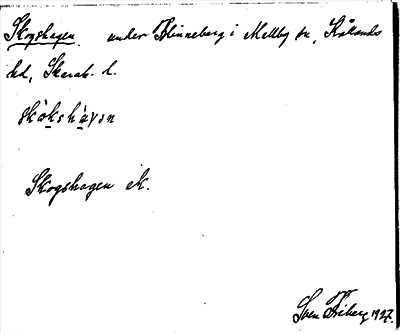 Skogshagen under Blinneberg i Mellby sn, Kållands
hd, Skarab. l.
skòkshàγən
Skogshagen ek.
Sven Friberg 1927.